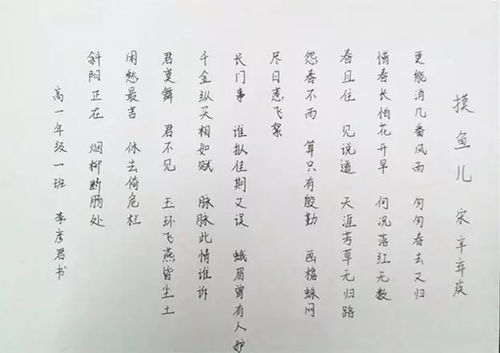 摸鱼儿 宋 辛弃疾
更能消几番风雨 匆匆春去又归
惜春长怕花开早 何况落红无数
春且住 见说道 天涯芳草无归路
怨春不雨 算只有殷勤 画檐蛛网
尽日惹飞絮
长门事 谁拟佳期又误 蛾眉曾有人妒
千金纵买相如赋 脉脉此情谁诉
君莫舞 君不见 玉环飞燕皆尘土
闲愁最苦 休去倚危栏
斜阳正在 烟柳断肠处
高一年级一班 李彦君书